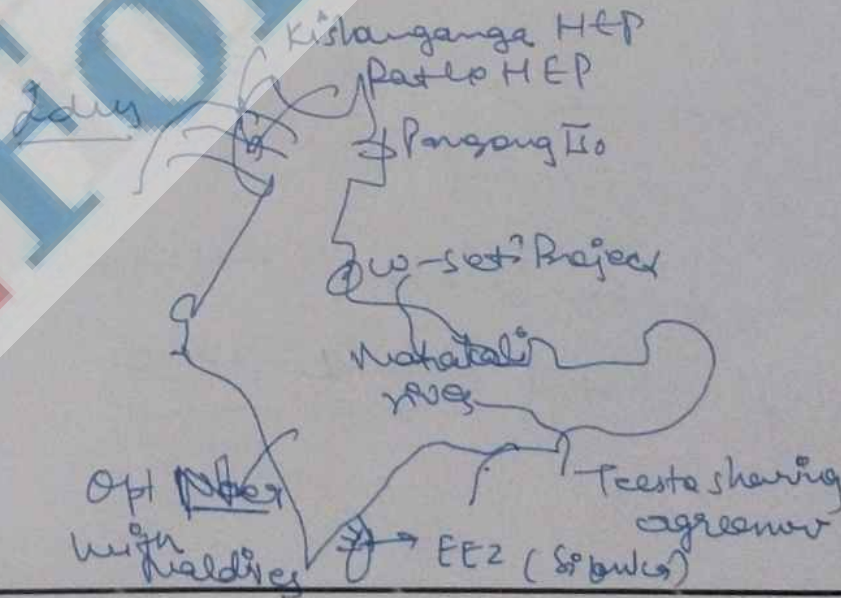 Kishanganga HEP
Ratle HEP
Indus
Pangong Tso
W-seti Project
Mahakali
river
Teesta sharing
Opt
with
Maldives
EEZ (